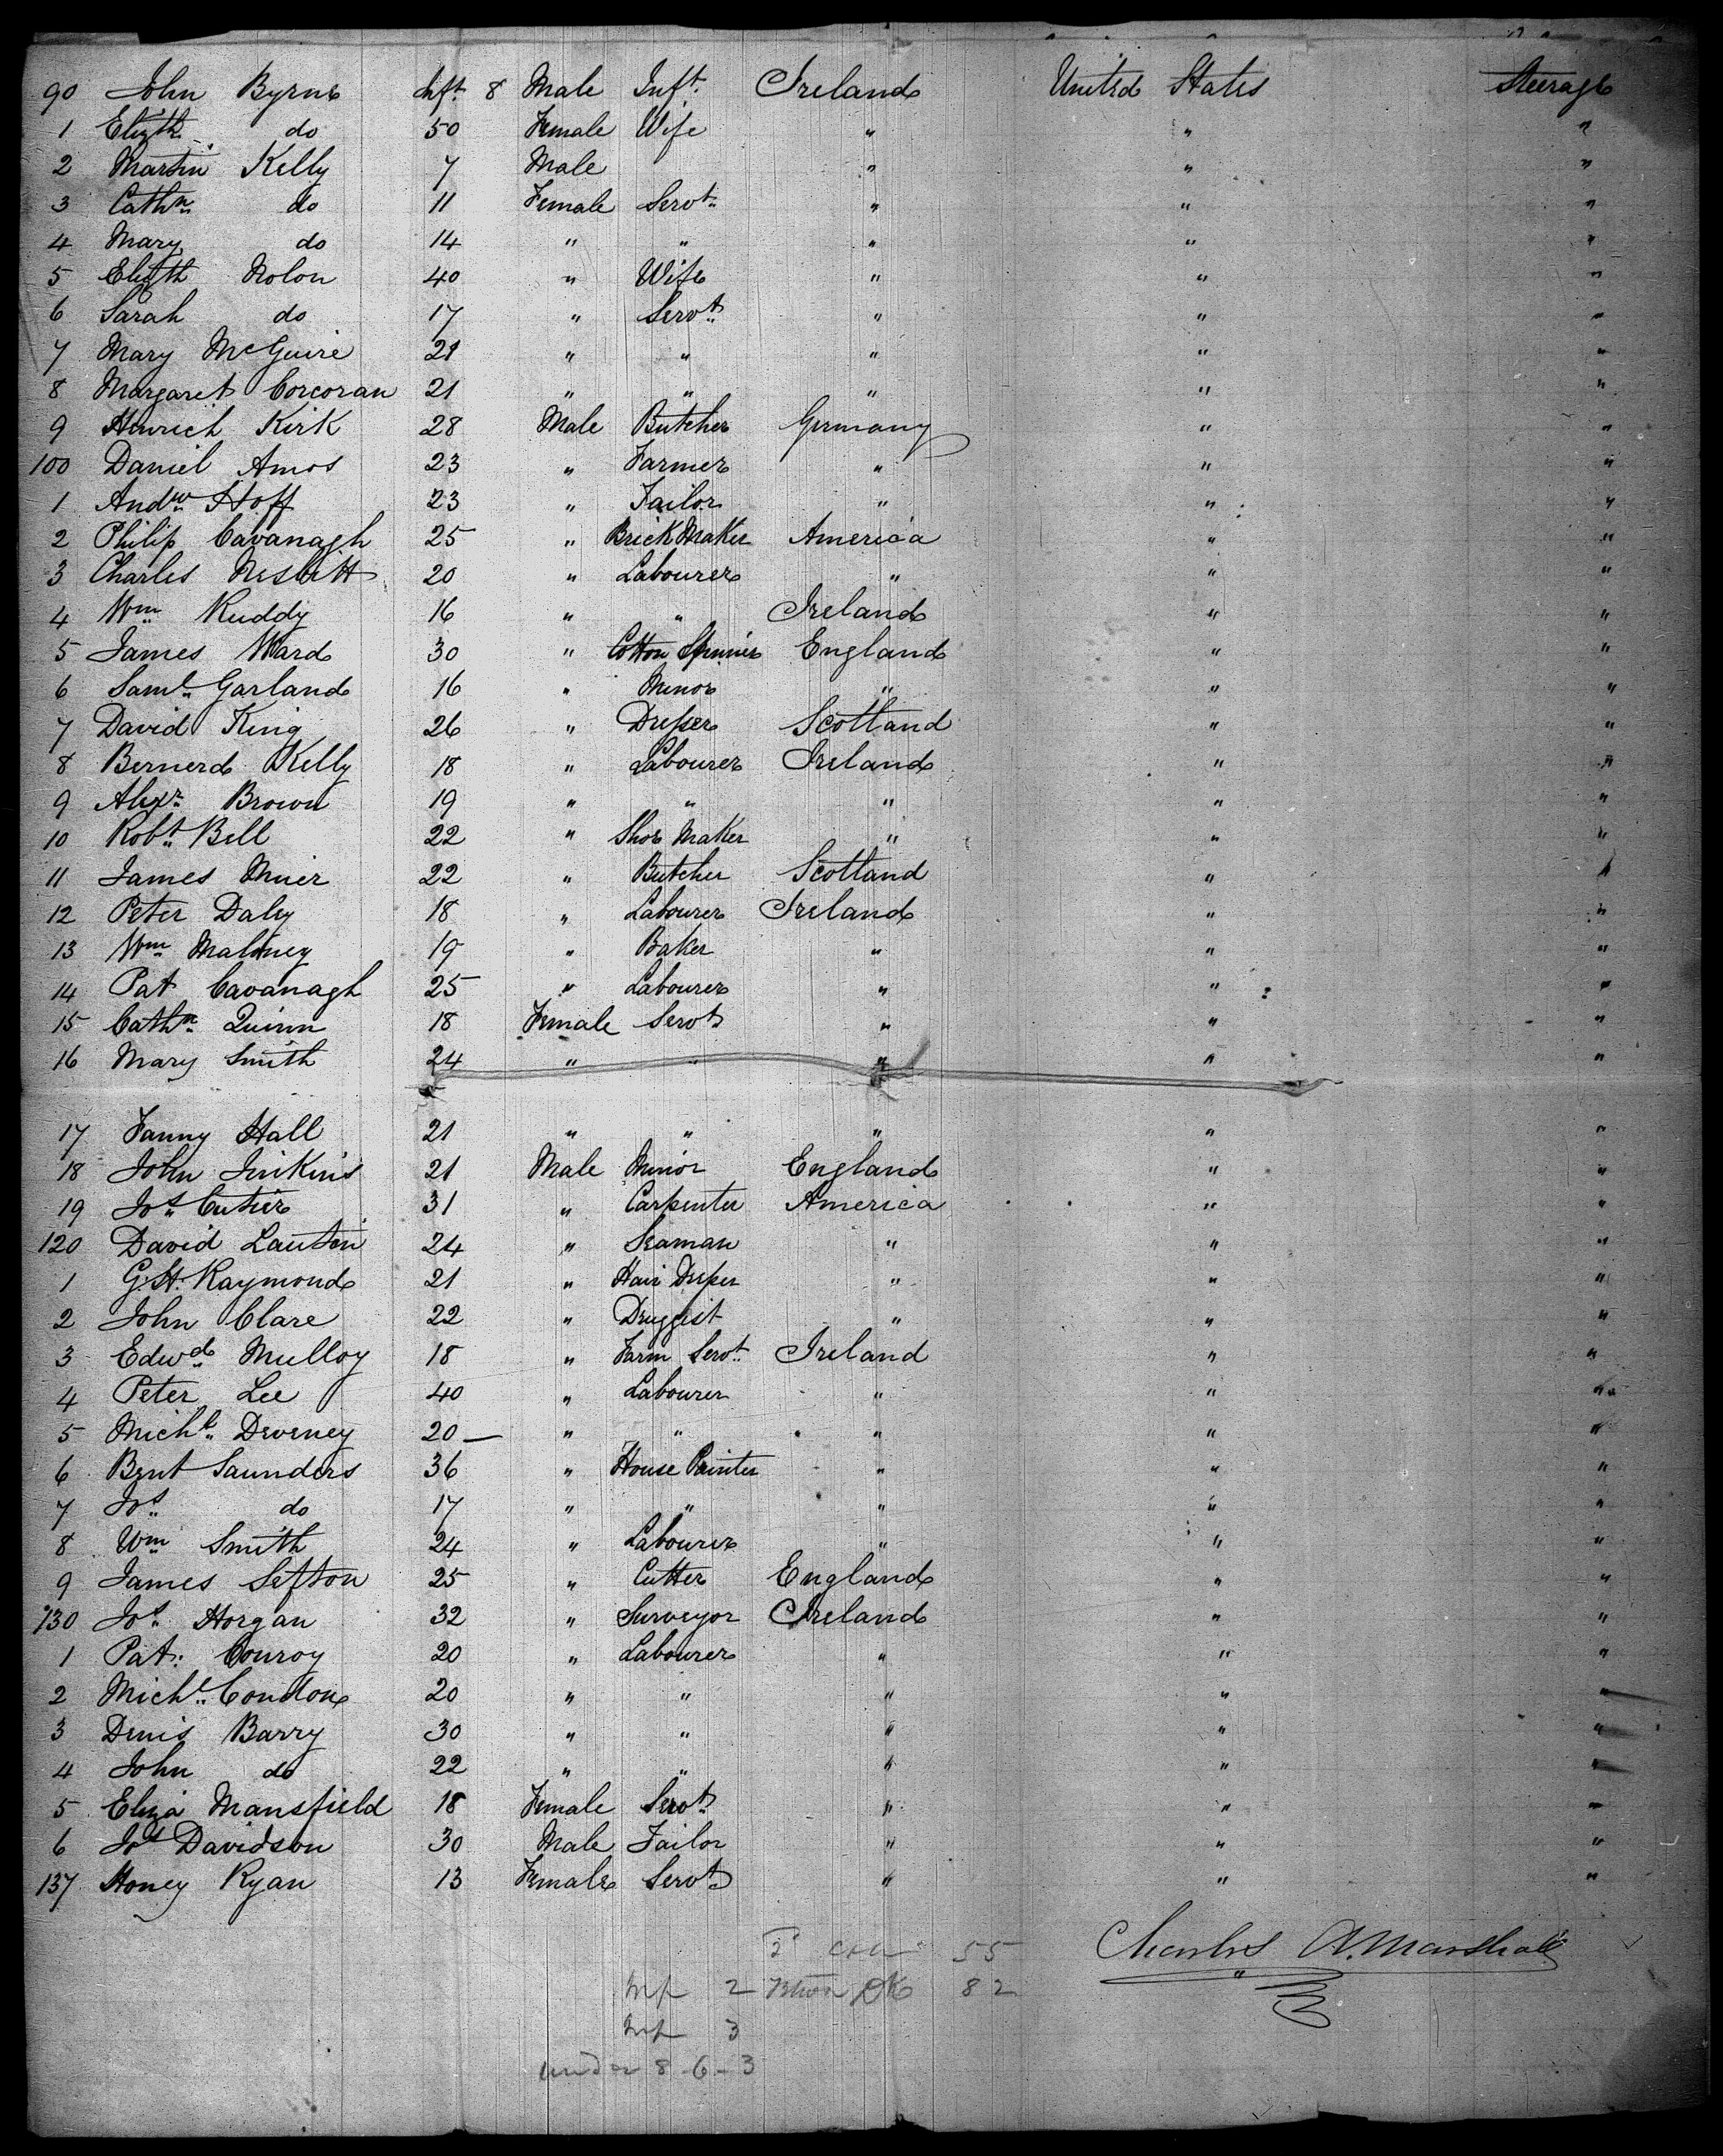 90 John Byrne Inft. 8 Male Inft. Ireland United States Steerage
1 Elizth do 50 Female Wife " " "
2 Martin Kelly 7 Male " " "
3 Cathn do 11 Female Servt " " "
4 Mary do 14 " " " " "
5 Elizth Nolon 40 " Wife " " "
6 Sarah do 17 " Servt " " "
7 Mary McGuire 21 " " " " "
8 Margaret Corcoran 21 " " " " "
9 Hinrich Kirk 28 Male Butcher Germany " "
100 Daniel Amos 23 " Farmer " " "
1 Andw Hoff 23 " Tailor " " "
2 Philip Cavanagh 25 " Brick Maker America " "
3 Charles Nesbitt 20 " Labourer " " "
4 Wm Ruddy 16 " " Ireland " "
5 James Ward 30 " Cotton Spinner England " "
6 Saml Garland 16 " Minor " " "
7 David King 26 " Dresser Scotland " "
8 Bernerd Kelly 18 " Labourer Ireland " "
9 Alexr Brown 19 " " " " "
10 Robt Bell 22 " Shoe Maker " " "
11 James Muir 22 " Butcher Scotland " "
12 Peter Daly 18 " Labourer Ireland " "
13 Wm Maloney 19 " Baker " " "
14 Pat Cavanagh 25 " Labourer " " "
15 Cathn Quinn 18 Female Servt " " "
16 Mary Smith 24 " " " " "
17 Fanny Hall 21 " " " " "
18 John Jinkins 21 Male Minor England " "
19 Jos Cutier 31 " Carpenter America " "
120 David Lauton 24 " Seaman " " "
1 G. H. Raymond 21 " Hair Dresser " " "
2 John Clare 22 " Druggist " " "
3 Edwd Mulloy 18 " Farm Servt Ireland " "
4 Peter Lee 40 " Labourer " " "
5 Michl Deverney 20 " " " " "
6 Bent Saunders 36 " House Painter " " "
7 Jos do 17 " " " " "
8 Wm Smith 24 " Labourer " " "
9 James Sefton 25 " Cutter England " "
130 Jos Horgan 32 " Surveyor Ireland " "
1 Pat: Conroy 20 " Labourer " " "
2 Michl Condon 20 " " " " "
3 Denis Barry 30 " " " " "
4 John do 22 " " " " "
5 Eliza Mansfield 18 Female Servt " " "
6 Jos Davidson 30 Male Tailor " " "
137 Honey Ryan 13 Female Servt " " "
55 Charles A. Marshall
2 82
3
under 8 - 6 - 3